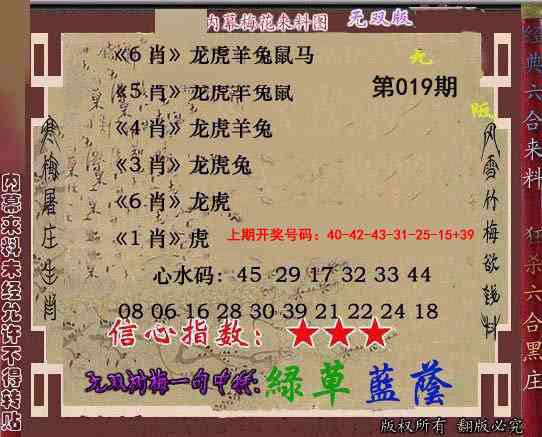 内幕梅花来料图 无双版
《6肖》龙虎羊兔鼠马
《5肖》龙虎羊兔鼠
第019期
《4肖》龙虎羊兔
《3肖》龙虎兔
《6肖》龙虎
《1肖》虎
上期开奖号码：40-42-43-31-25-15+39
心水码：45 29 17 32 33 44
08 06 16 28 30 39 21 22 24 18
信心指数：★★★
无双浏梅一句中特：緑草藍蔭
版权所有 翻版必究
寒梅屠庄生肖
风雪竹梅欲钱料
内幕来料未经允许不得转贴
经典六合来料
狂杀六合黑庄